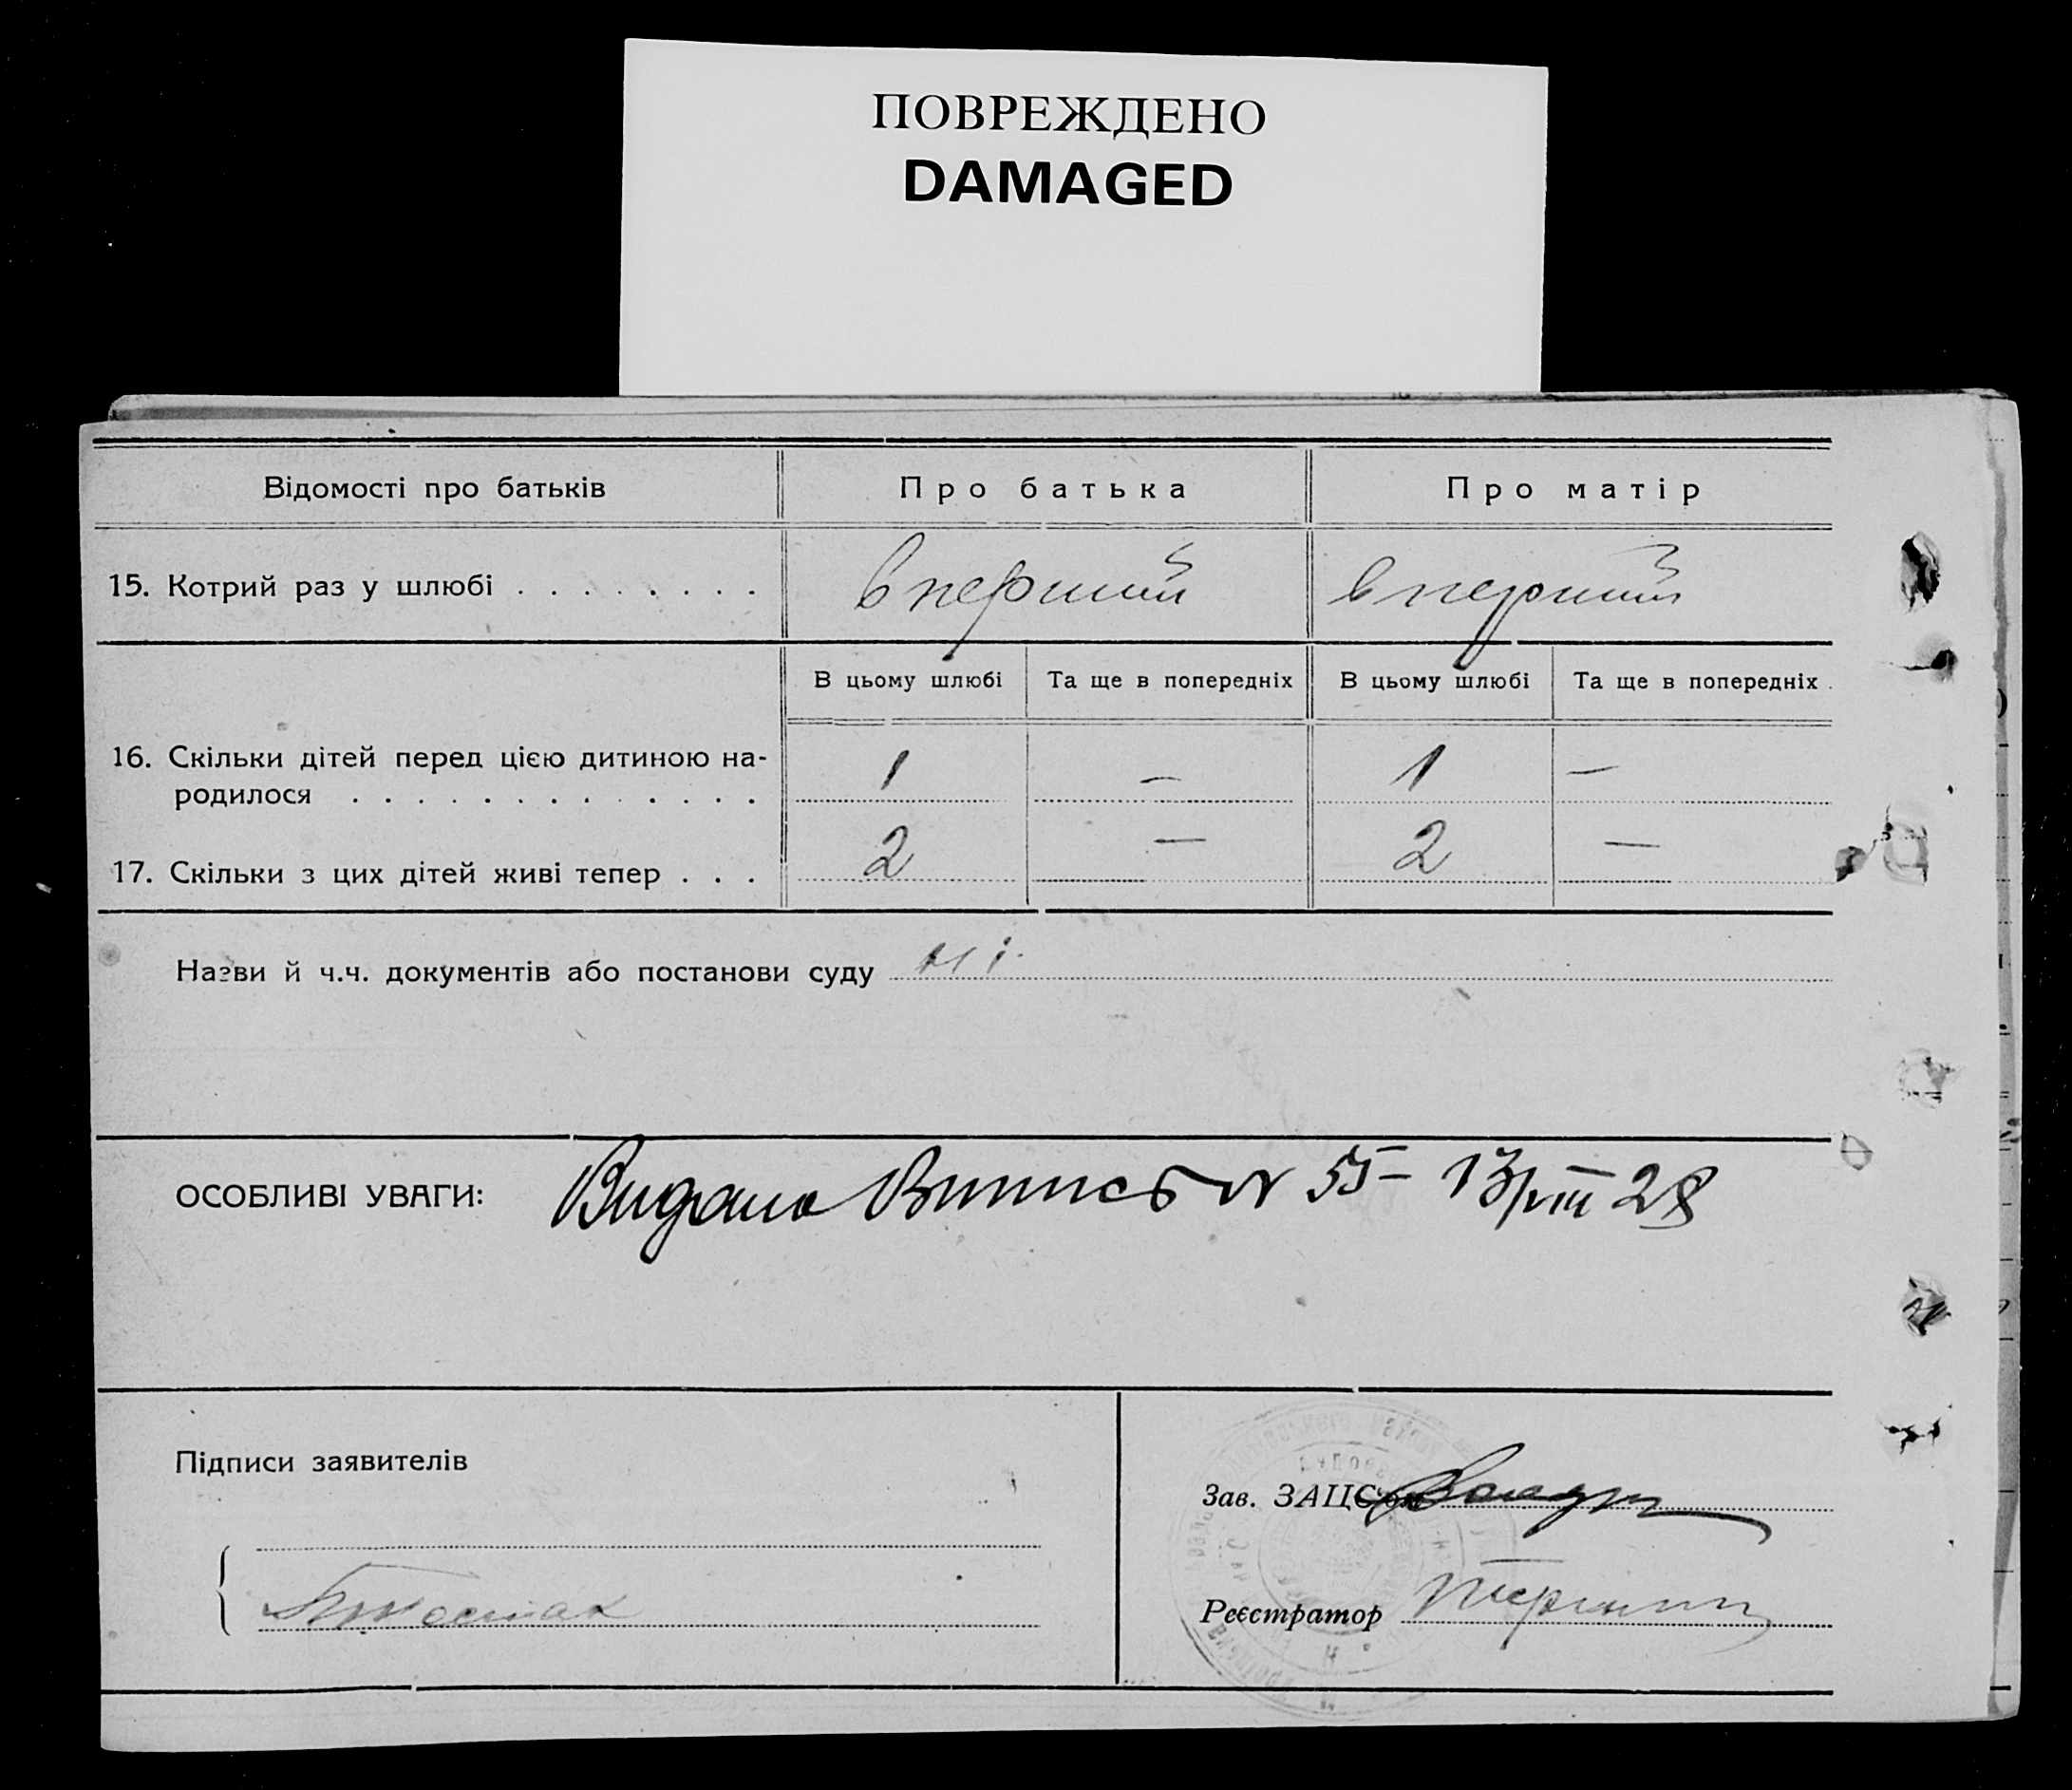 ПОВРЕЖДЕНО
DAMAGED
Відомості про батьків
Про батька
Про матір
15. Котрий раз у шлюбі . . . . . . . .
вперший
вперший
В цьому шлюбі
Та ще в попередніх
В цьому шлюбі
Та ще в попередніх
16. Скільки дітей перед цією дитиною на-
родилося . . . . . . . . . . . . .
1
—
1
—
17. Скільки з цих дітей живі тепер . . .
2
—
2
—
Назви й ч.ч. документів або постанови суду
ні
ОСОБЛИВІ УВАГИ:
Видано Випись N 55 – 13/VIII 28
Підписи заявителів
Зав. ЗАЦС'ом
Реєстратор